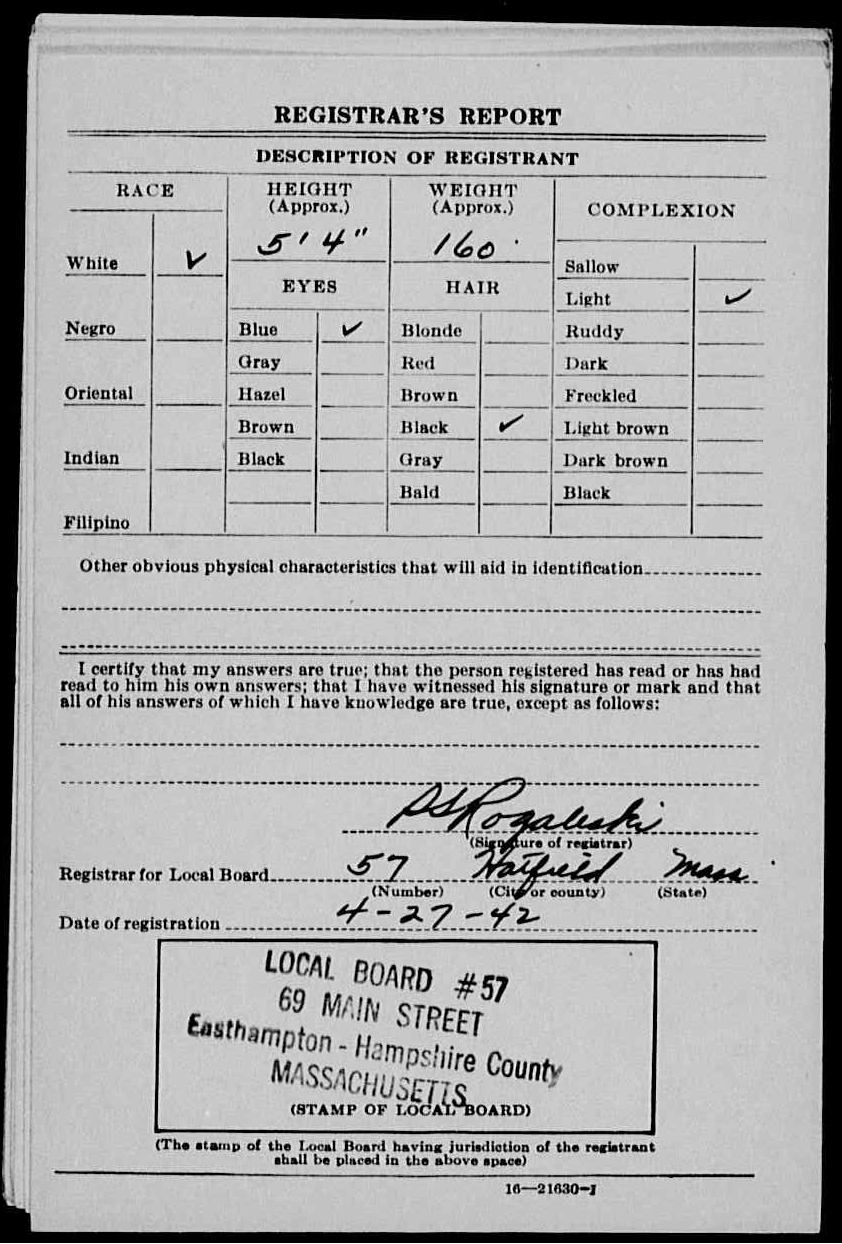 REGISTRAR'S REPORT
DESCRIPTION OF REGISTRANT
RACE
HEIGHT
(Approx.)
WEIGHT
(Approx.)
COMPLEXION
5' 4"
160
White ✓
EYES
HAIR
Sallow
Light ✓
Negro
Blue ✓
Blonde
Ruddy
Gray
Red
Dark
Oriental
Hazel
Brown
Freckled
Brown
Black ✓
Light brown
Indian
Black
Gray
Dark brown
Bald
Black
Filipino
Other obvious physical characteristics that will aid in identification
I certify that my answers are true; that the person registered has read or has had
read to him his own answers; that I have witnessed his signature or mark and that
all of his answers of which I have knowledge are true, except as follows:
Rogaleski
(Signature of registrar)
Registrar for Local Board 57 Hatfield Mass
(Number) (City or county) (State)
Date of registration 4-27-42
LOCAL BOARD #57
69 MAIN STREET
Easthampton - Hampshire County
MASSACHUSETTS
(STAMP OF LOCAL BOARD)
(The stamp of the Local Board having jurisdiction of the registrant
shall be placed in the above space)
16—21630-1